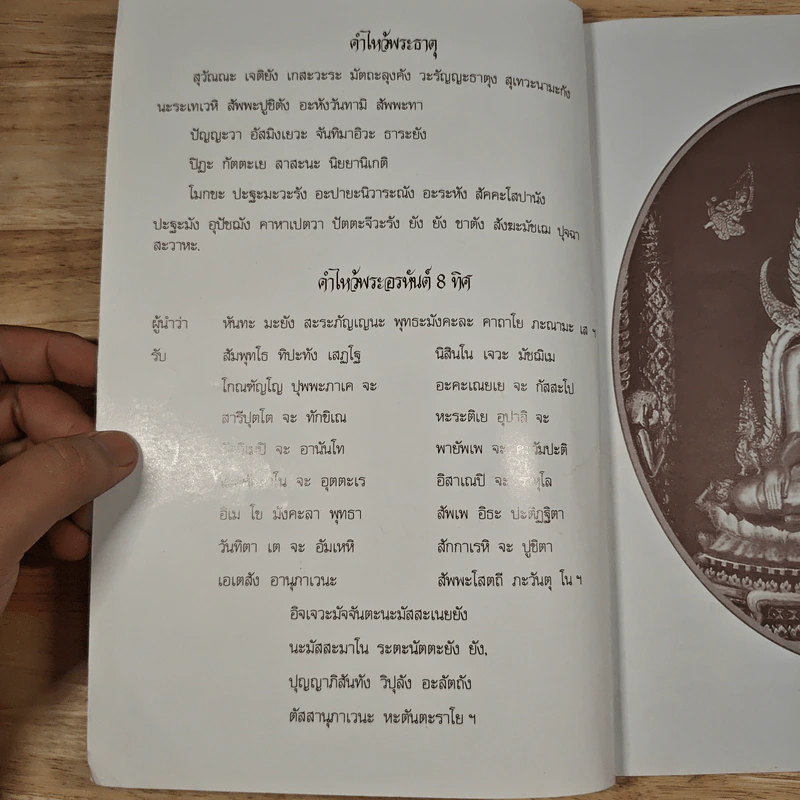 คำไหว้พระธาตุ
สุวัณณะ เจติยัง เกสะวะระ มัตถะลุงคัง วะรัญญะธาตุง สุเทวะนามะกัง
นะระเทเวหิ สัพพะปูชิตัง อะหังวันทามิ สัพพะทา
ปัญญะวา อัสมิงเยวะ จันทิมาอิวะ ธาระยัง
ปิฏะ กัตตะเย สาสะนะ นิยยานิเกติ
โมกขะ ปะฐะมะวะรัง อะปายะนิวาระณัง อะระหัง สัคคะโสปานัง
ปะฐะมัง อุปัชฌัง คาหาเปตวา ปัตตะจีวะรัง ยัง ยัง ชาตัง สังฆะมัชเฌ ปุจฉา
สะวาหะ.
คำไหว้พระอรหันต์ 8 ทิศ
ผู้นำว่า หันทะ มะยัง สะระภัญเญนะ พุทธะมังคะละ คาถาโย ภะณามะ เส ฯ
รับ สัมพุทโธ ทิปะทัง เสฏโฐ นิสินโน เจวะ มัชฌิเม
โกณฑัญโญ ปุพพะภาเค จะ อะคะเณยเย จะ กัสสะโป
สารีปุตโต จะ ทักขิเณ หะระติเย อุปาลิ จะ
จะ อานันโท พายัพเพ จะ
จะ อุตตะเร อิสาเณปิ จะ
อิเม โข มังคะลา พุทธา สัพเพ อิธะ ปะติฏฐิตา
วันทิตา เต จะ อัมเหหิ สักกาเรหิ จะ ปูชิตา
เอเตสัง อานุภาเวนะ สัพพะโสตถี ภะวันตุ โน ฯ
อิจเจวะมัจจันตะนะมัสสะเนยยัง
นะมัสสะมาโน ระตะนัตตะยัง ยัง,
ปุญญาภิสันทัง วิปุลัง อะลัตถัง
ตัสสานุภาเวนะ หะตันตะราโย ฯ